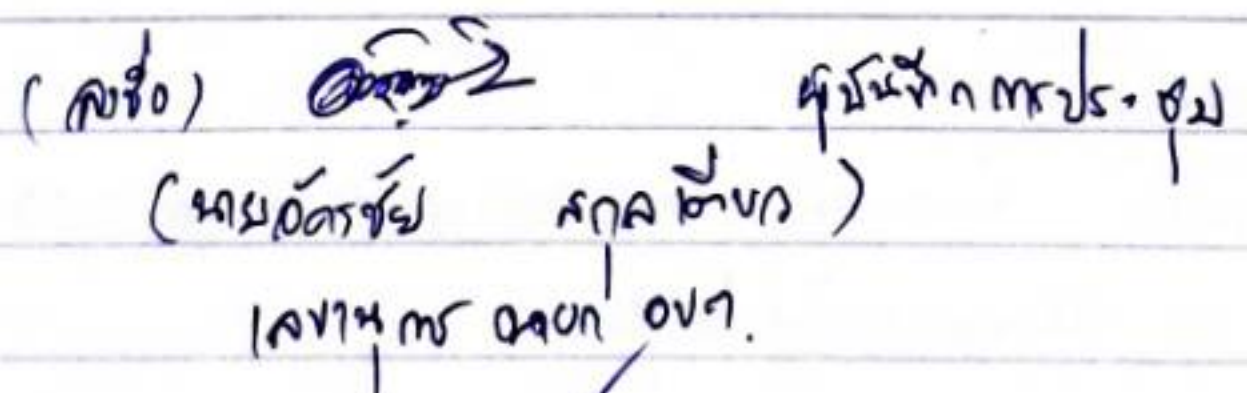 (ลงชื่อ) ผู้บันทึกการประชุม
(นายอัครชัย สกุลเตียว)
เลขานุการ นายก อบต.